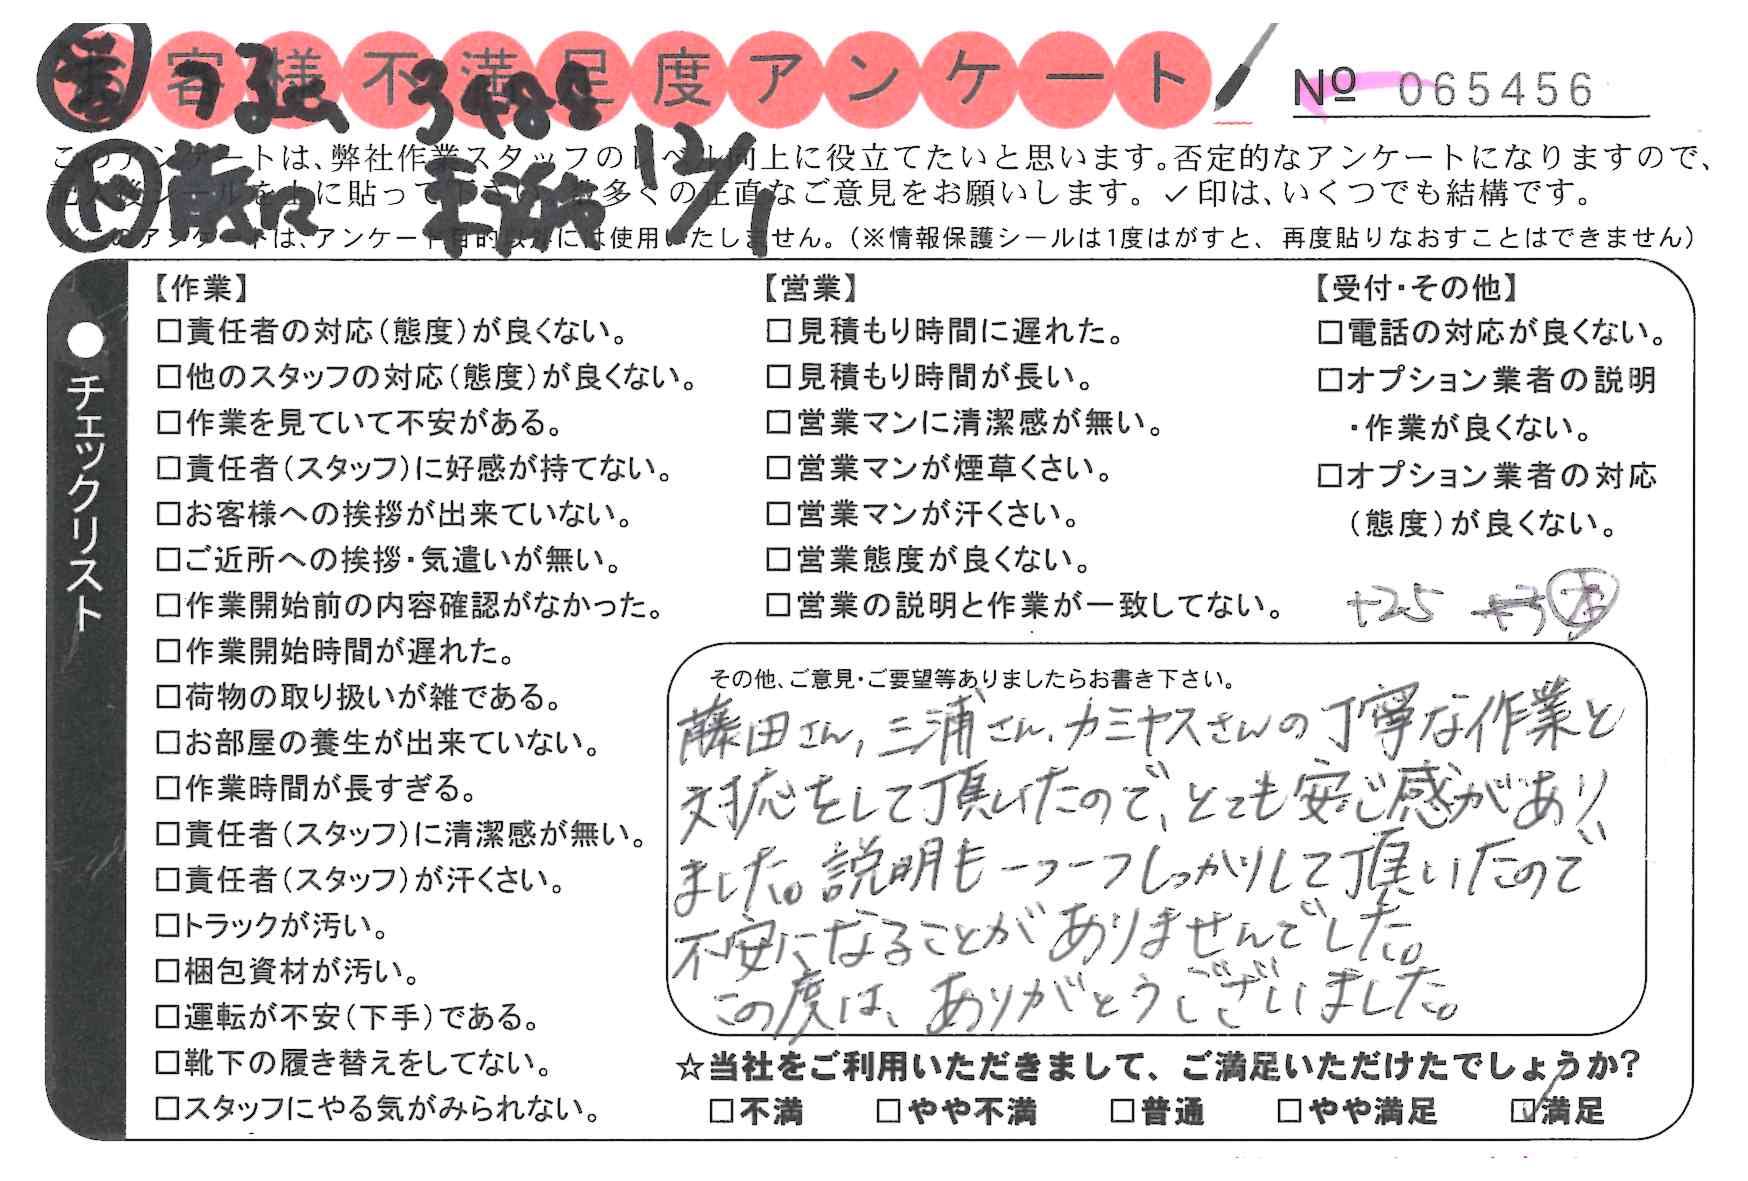 お客様不満足度アンケート
№ 065456
12/1
このアンケートは、弊社作業スタッフのレベル向上に役立てたいと思います。否定的なアンケートになりますので、
記入後シールを上に貼って下さい。数多くの正直なご意見をお願いします。✓印は、いくつでも結構です。
※このアンケートは、アンケート目的以外には使用いたしません。(※情報保護シールは1度はがすと、再度貼りなおすことはできません)
●チェックリスト
【作業】
□責任者の対応(態度)が良くない。
□他のスタッフの対応(態度)が良くない。
□作業を見ていて不安がある。
□責任者(スタッフ)に好感が持てない。
□お客様への挨拶が出来ていない。
□ご近所への挨拶・気遣いが無い。
□作業開始前の内容確認がなかった。
□作業開始時間が遅れた。
□荷物の取り扱いが雑である。
□お部屋の養生が出来ていない。
□作業時間が長すぎる。
□責任者(スタッフ)に清潔感が無い。
□責任者(スタッフ)が汗くさい。
□トラックが汚い。
□梱包資材が汚い。
□運転が不安(下手)である。
□靴下の履き替えをしてない。
□スタッフにやる気がみられない。
【営業】
□見積もり時間に遅れた。
□見積もり時間が長い。
□営業マンに清潔感が無い。
□営業マンが煙草くさい。
□営業マンが汗くさい。
□営業態度が良くない。
□営業の説明と作業が一致してない。
【受付・その他】
□電話の対応が良くない。
□オプション業者の説明
・作業が良くない。
□オプション業者の対応
(態度)が良くない。
+25
その他、ご意見・ご要望等ありましたらお書き下さい。
藤田さん,三浦さん、カミヤスさんの丁寧な作業と
対応をして頂いたので、とても安心感があり
ました。説明も一つ一つしっかりして頂いたので
不安になることがありませんでした。
この度は、ありがとうございました。
☆当社をご利用いただきまして、ご満足いただけたでしょうか?
□不満 □やや不満 □普通 □やや満足 ☑満足